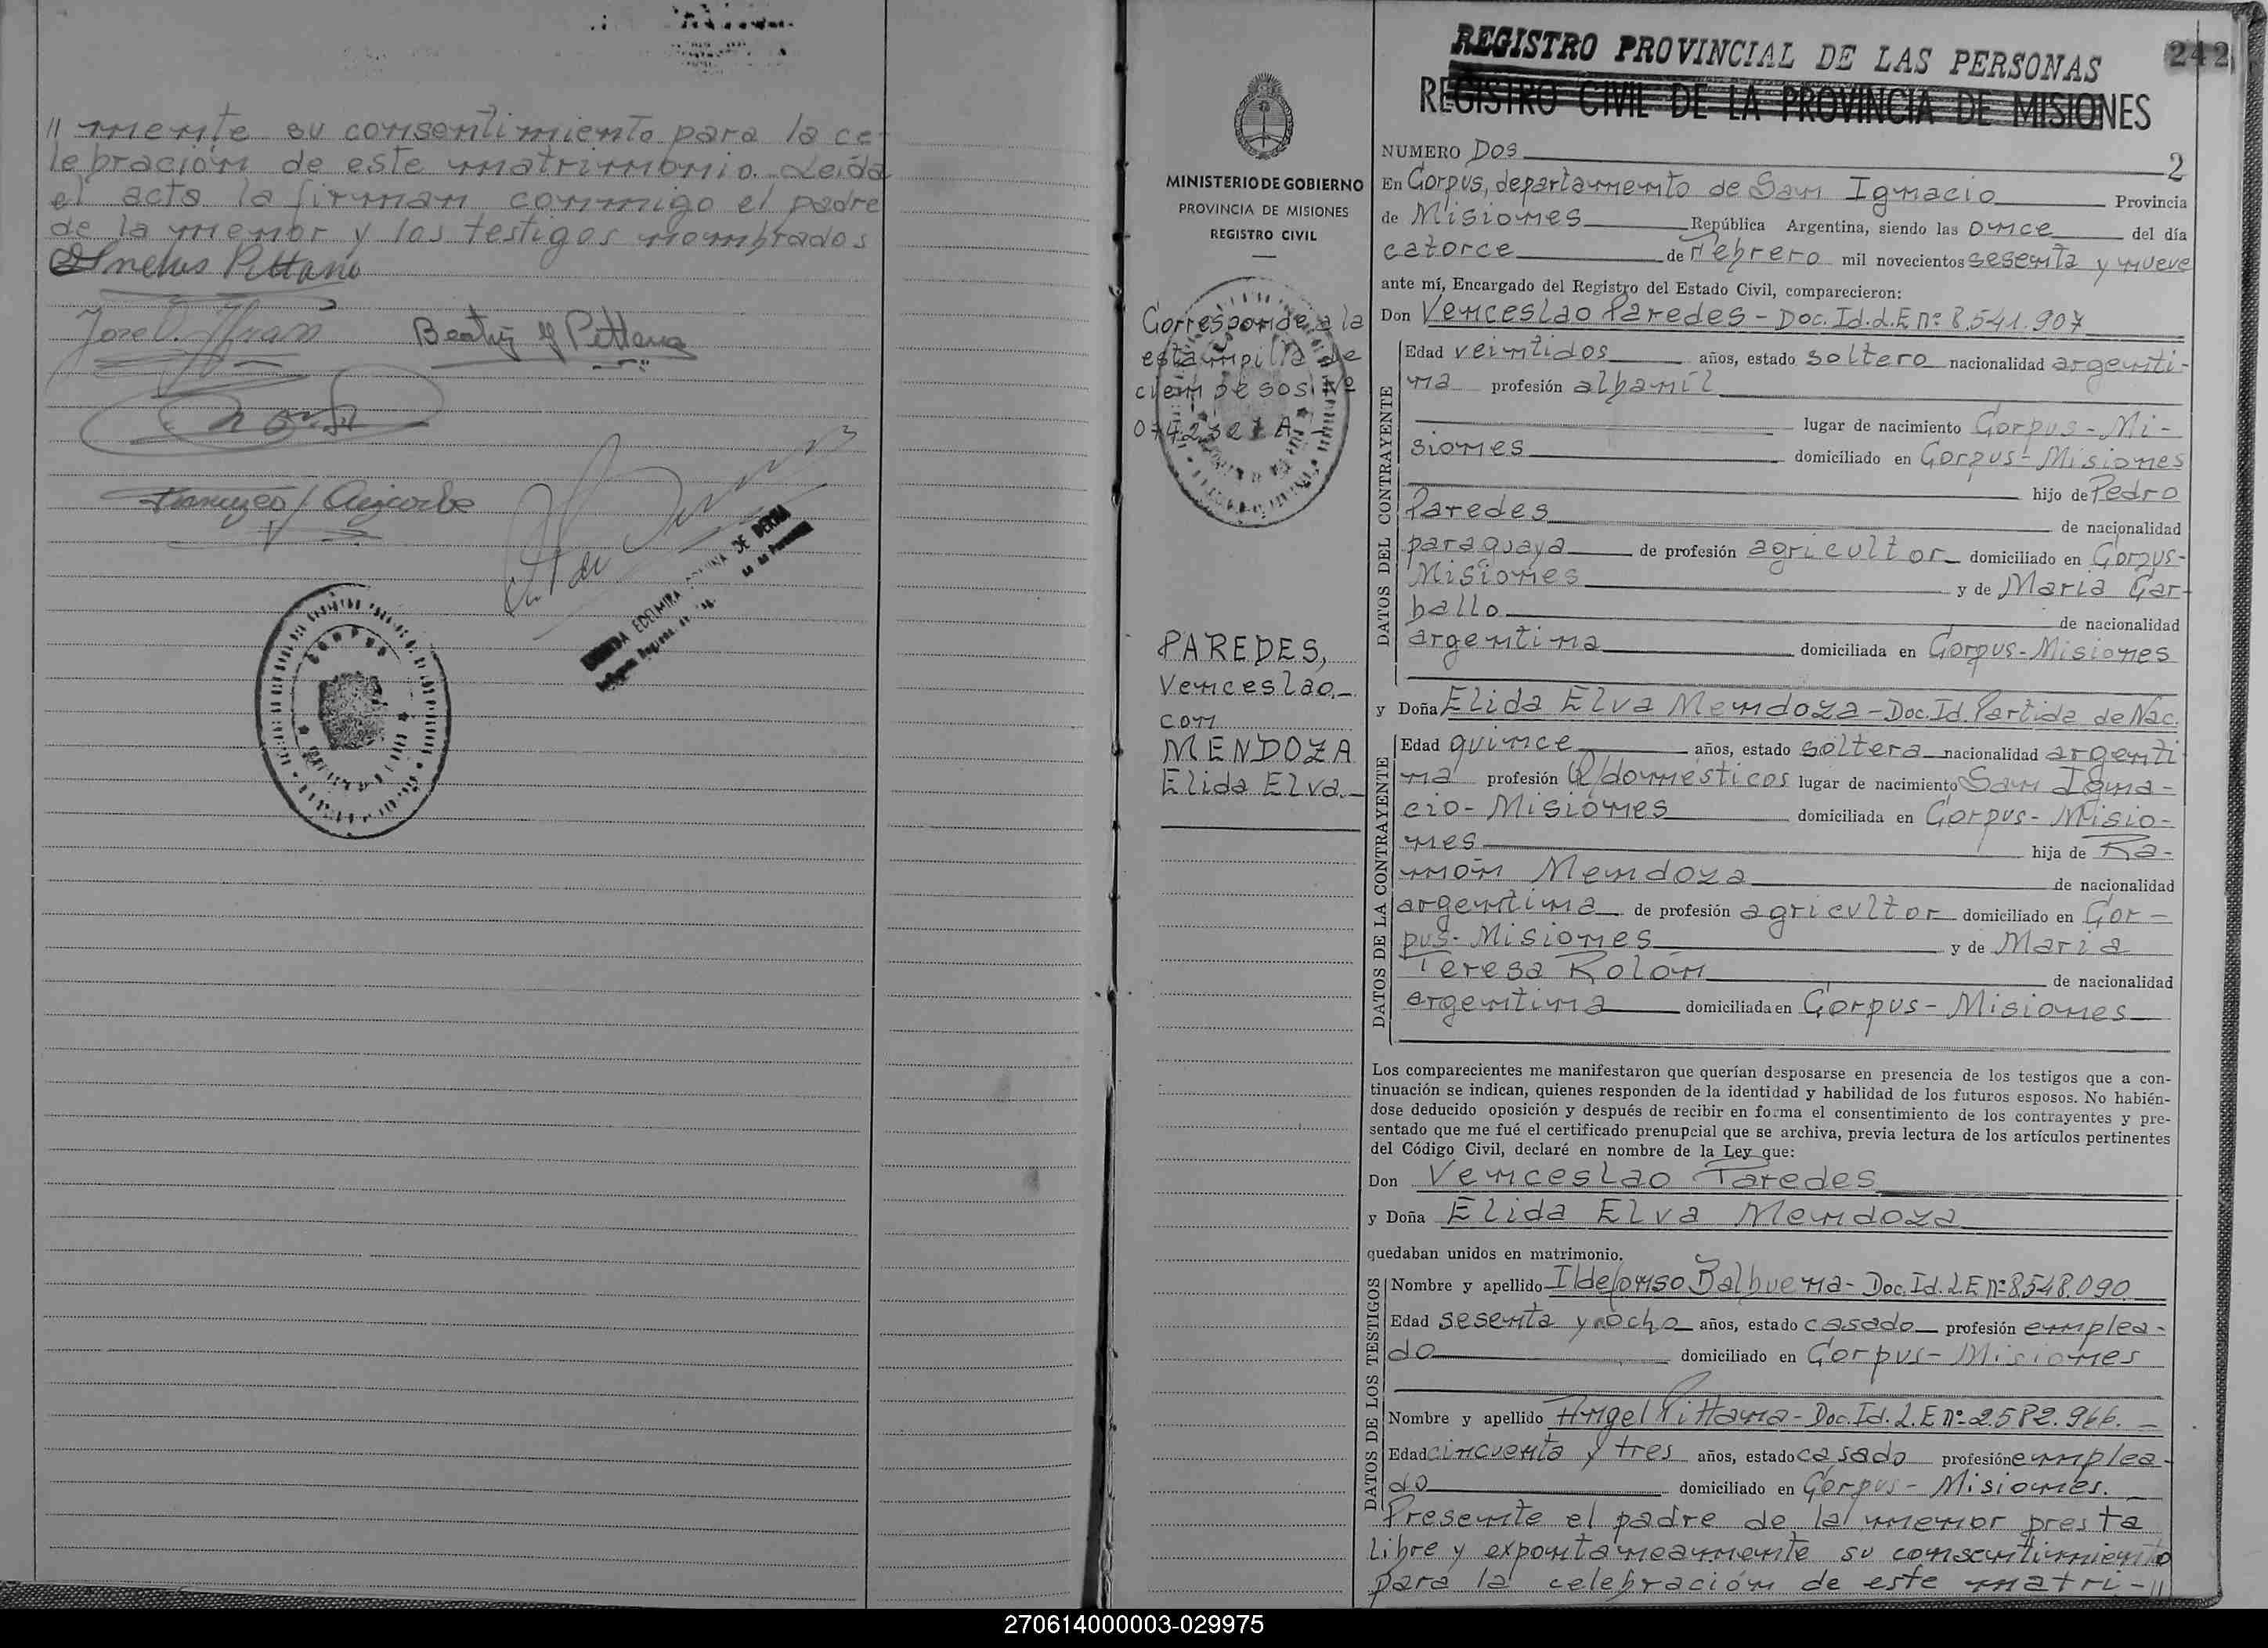 // mente su consentimiento para la ce-
lebración de este matrimonio. Leída
el acta la firman conmigo el padre
de la menor y los testigos nombrados
Pittana
Jose
Beatriz Pittana
EDELMIRA
DE
REGISTRO PROVINCIAL DE LAS PERSONAS
242
REGISTRO CIVIL DE LA PROVINCIA DE MISIONES
MINISTERIO DE GOBIERNO
PROVINCIA DE MISIONES
REGISTRO CIVIL
Corresponde a la
estampilla de
cien pesos Nº
PAREDES,
Venceslao.-
con
MENDOZA
Elida Elva.-
NUMERO Dos
2
En Corpus, departamento de San Ignacio Provincia
de Misiones República Argentina, siendo las once del día
catorce de Febrero mil novecientos sesenta y nueve
ante mí, Encargado del Registro del Estado Civil, comparecieron:
Don Venceslao Paredes - Doc. Id. L.E nº 8.541.907
DATOS DEL CONTRAYENTE
Edad veintidos años, estado soltero nacionalidad argenti-
na profesión albanil
lugar de nacimiento Corpus - Mi-
siones domiciliado en Corpus - Misiones
hijo de Pedro
Paredes de nacionalidad
paraguaya de profesión agricultor domiciliado en Corpus-
Misiones y de María Car-
ballo de nacionalidad
argentina domiciliada en Corpus - Misiones
y Doña Elida Elva Mendoza - Doc. Id. Partida de Nac.
DATOS DE LA CONTRAYENTE
Edad quince años, estado soltera nacionalidad argenti-
na profesión Q/domésticos lugar de nacimiento San Igna-
cio - Misiones domiciliada en Corpus - Misio-
nes hija de Ra-
món Mendoza de nacionalidad
argentina de profesión agricultor domiciliado en Cor-
pus - Misiones y de María
Teresa Rolón de nacionalidad
argentina domiciliada en Corpus - Misiones
Los comparecientes me manifestaron que querían desposarse en presencia de los testigos que a con-
tinuación se indican, quienes responden de la identidad y habilidad de los futuros esposos. No habién-
dose deducido oposición y después de recibir en forma el consentimiento de los contrayentes y pre-
sentado que me fué el certificado prenupcial que se archiva, previa lectura de los artículos pertinentes
del Código Civil, declaré en nombre de la Ley que:
Don Venceslao Paredes
y Doña Elida Elva Mendoza
quedaban unidos en matrimonio.
DATOS DE LOS TESTIGOS
Nombre y apellido Ildefonso Balbuena - Doc. Id. L.E nº 8.548.090
Edad sesenta y ocho años, estado casado profesión emplea-
do domiciliado en Corpus - Misiones
Nombre y apellido Angel Pittana - Doc. Id. L.E nº 2.582.966.
Edad cincuenta y tres años, estado casado profesión emplea-
do domiciliado en Corpus - Misiones.
Presente el padre de la menor presta
libre y expontaneamente su consentimiento
para la celebración de este matri-//
270614000003-029975